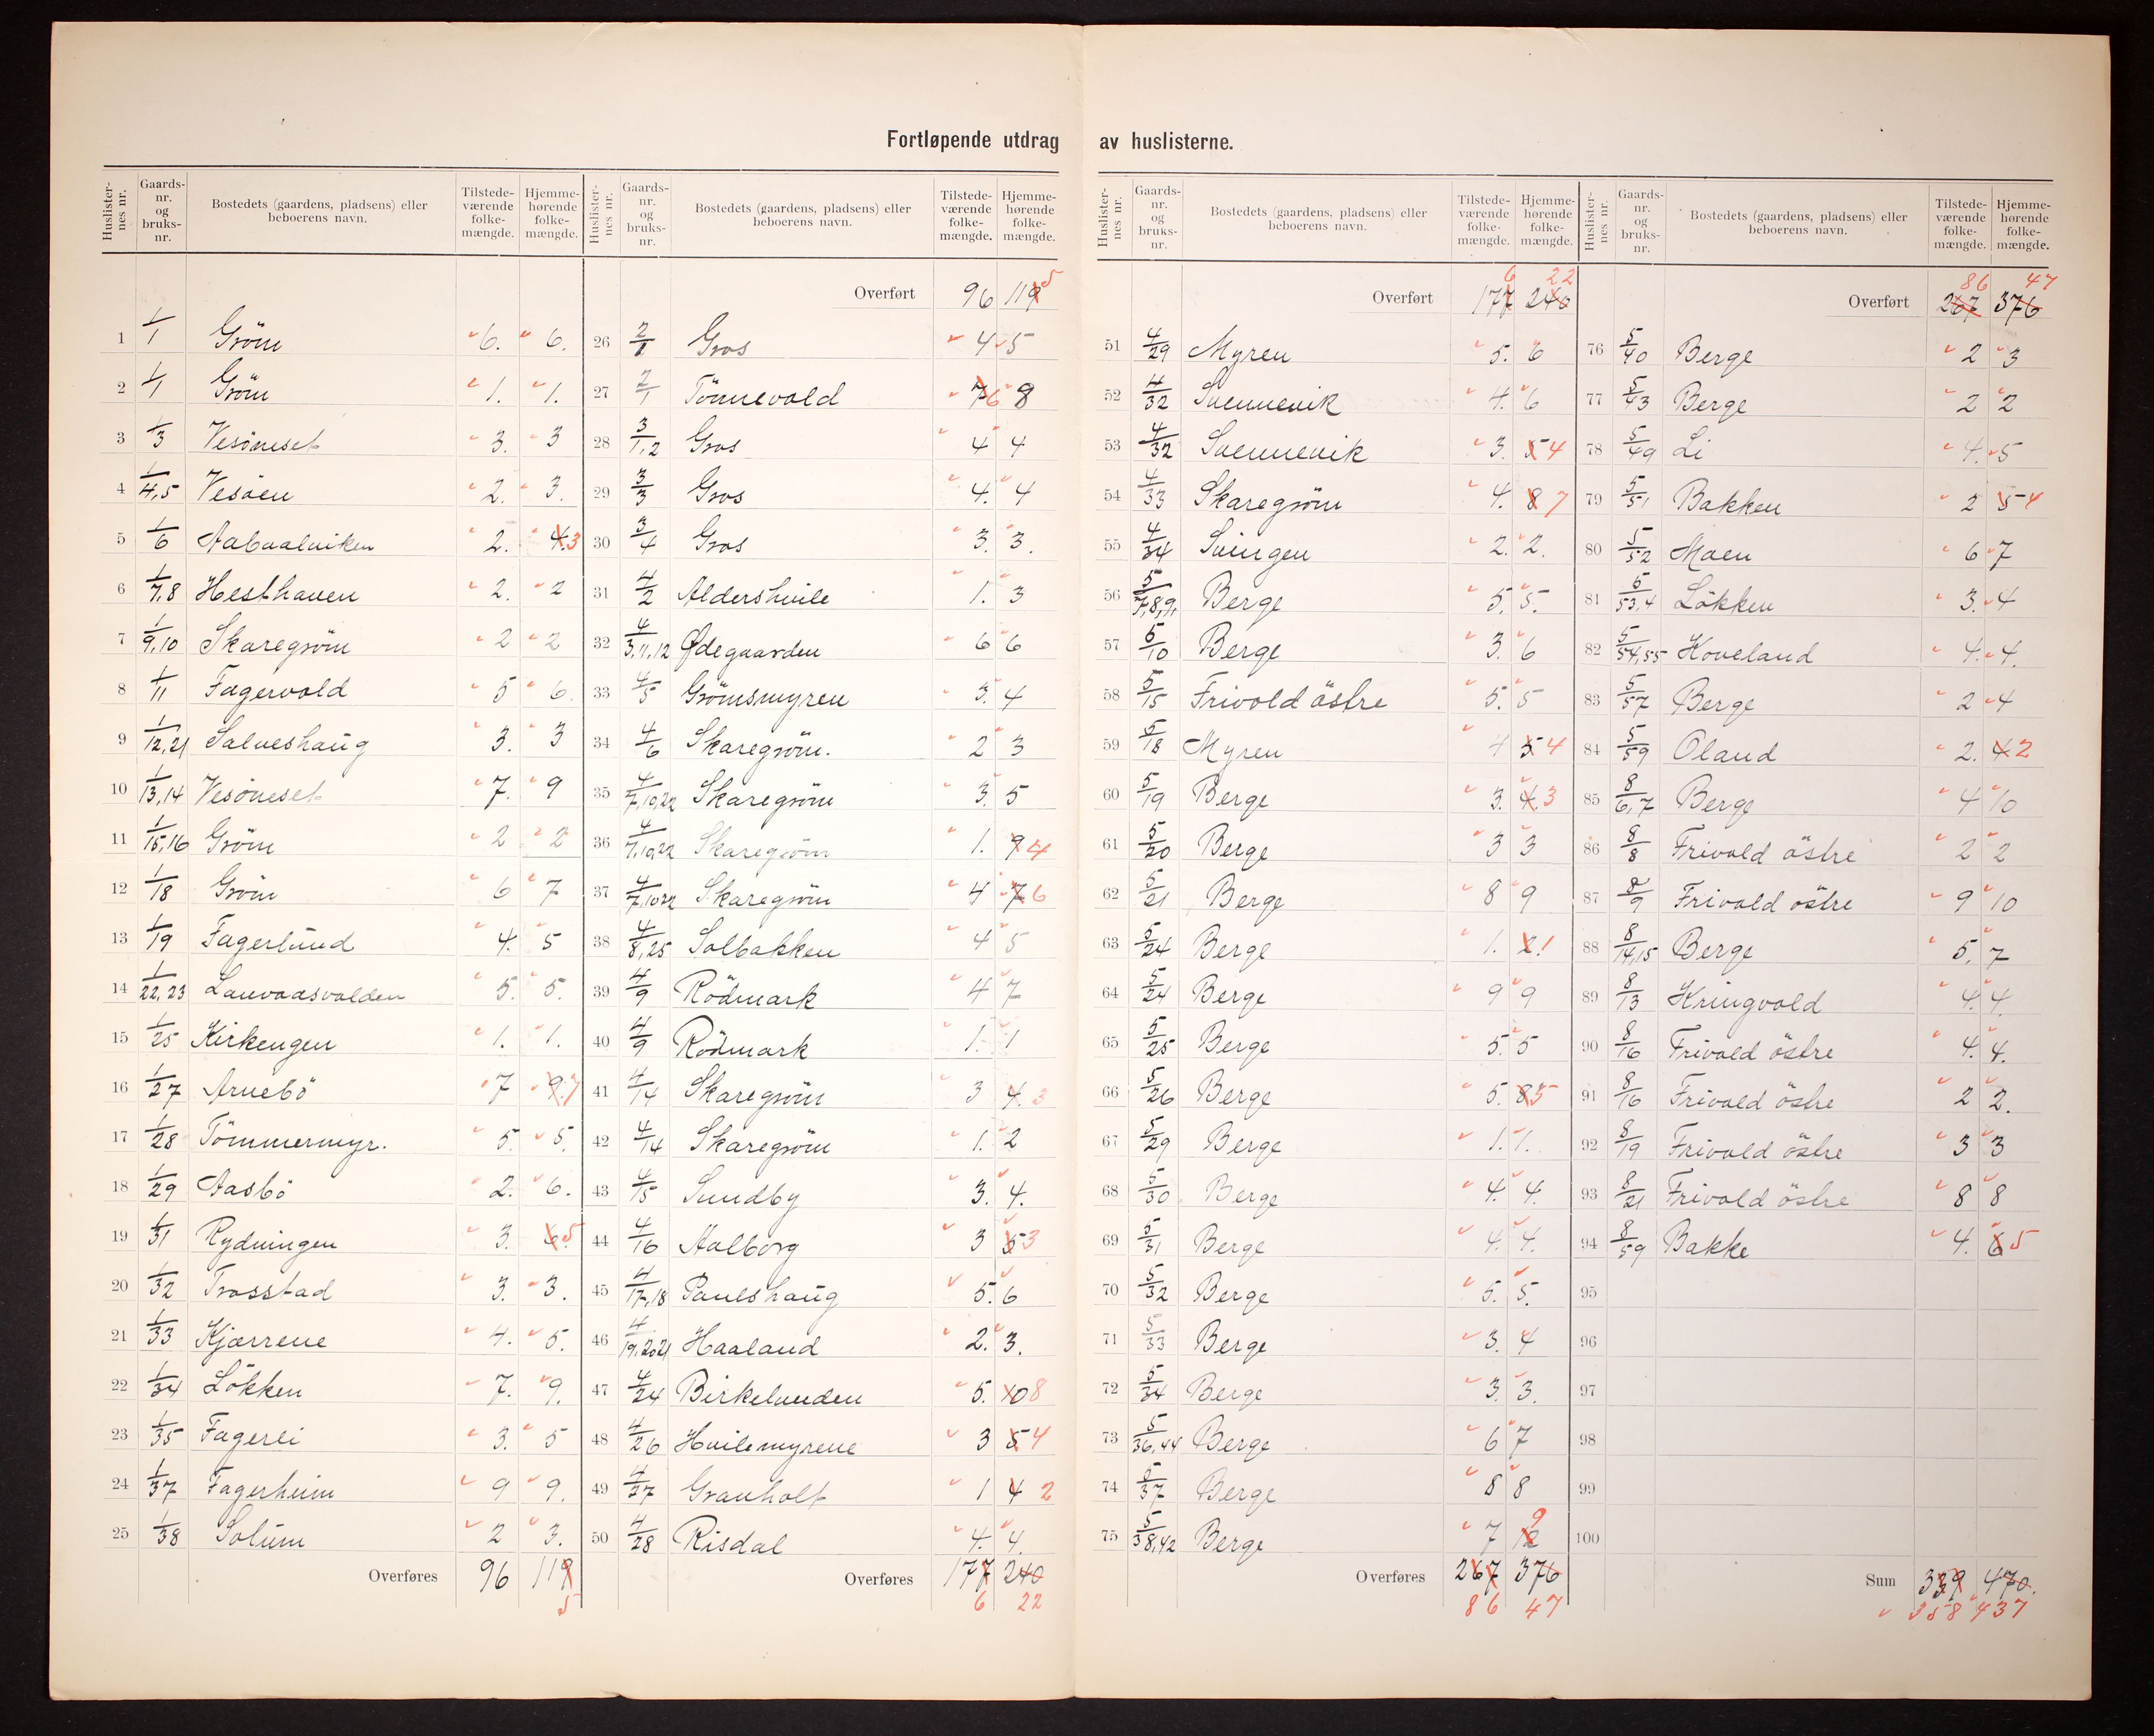 Fortløpende utdrag av huslisterne.
Huslister-nes nr. Gaards-nr. og bruks-nr. Bostedets (gaardens, pladsens) eller beboerens navn. Tilstede-værende folke-mængde. Hjemme-hørende folke-mængde.
1 1/1 Gröm 6. 6.
2 1/1 Gröm 1. 1.
3 1/3 Vesöneset 3. 3
4 1/4,5 Vesöen 2. 3.
5 1/6 Aabaalviken 2. 4. 3
6 1/7,8 Hesthaven 2. 2
7 1/9,10 Skaregröm 2 2
8 1/11 Fagervold 5 6.
9 1/12,21 Salveshaug 3. 3
10 1/13,14 Vesöneset 7. 9
11 1/15,16 Gröm 2 2
12 1/18 Gröm 6 7
13 1/19 Fagerlund 4. 5
14 1/22,23 Lauvaasvolden 5. 5.
15 1/25 Kirkengen 1. 1.
16 1/27 Arnebö 7 9. 7
17 1/28 Tömmermyr. 5. 5.
18 1/29 Aasbö 2. 6.
19 1/31 Rydningen 3. 6. 5
20 1/32 Trosstad 3. 3.
21 1/33 Kjærrene 4. 5.
22 1/34 Lökken 7. 9.
23 1/35 Fagerli 3. 5
24 1/37 Fagerheim 9 9.
25 1/38 Solum 2 3.
Overføres 96 119 5
Huslister-nes nr. Gaards-nr. og bruks-nr. Bostedets (gaardens, pladsens) eller beboerens navn. Tilstede-værende folke-mængde. Hjemme-hørende folke-mængde.
Overført 96 119 5
26 2/1 Gros 4 5
27 2/1 Tönnevold 7 6 8
28 3/1,2 Gros 4 4
29 3/3 Gros 4. 4
30 3/4 Gros 3. 3.
31 4/2 Aldershvile 1. 3
32 4/3,11,12 Ødegaarden 6 6
33 4/5 Grömsmyren 3. 4
34 4/6 Skaregröm. 2 3
35 4/7,10,22 Skaregröm 3. 5
36 4/7,10,22 Skaregröm 1. 9 4
37 4/7,10,22 Skaregröm 4 7 6
38 4/8,25 Solbakken 4 5
39 4/9 Rödmark 4 7
40 4/9 Rödmark 1. 1
41 4/14 Skaregröm 3 4. 3
42 4/14 Skaregröm 1. 2
43 4/15 Sundby 3. 4.
44 4/16 Aalborg 3 5 3
45 4/17,18 Paulshaug 5. 6
46 4/19,20,21 Haaland 2. 3.
47 4/24 Birkelunden 5. 10 8
48 4/26 Hvilemyrene 3 5 4
49 4/27 Granholt 1 4 2
50 4/28 Risdal 4. 4.
Overføres 177 240
6 22
Huslister-nes nr. Gaards-nr. og bruks-nr. Bostedets (gaardens, pladsens) eller beboerens navn. Tilstede-værende folke-mængde. Hjemme-hørende folke-mængde.
6 22
Overført 177 240
51 4/29 Myren 5. 6
52 4/32 Svennevik 4. 6
53 4/32 Svennevik 3. 5 4
54 4/33 Skaregröm 4. 8 7
55 4/34 Svingen 2. 2.
56 5/7,8,9, Berge 5. 5.
57 5/10 Berge 3. 6
58 5/15 Frivold östre 5. 5
59 5/18 Myren 4 5 4
60 5/19 Berge 3. 4 3
61 5/20 Berge 3 3
62 5/21 Berge 8 9
63 5/24 Berge 1. 2 1
64 5/24 Berge 9 9
65 5/25 Berge 5. 5
66 5/26 Berge 5. 8 5
67 5/29 Berge 1. 1.
68 5/30 Berge 4. 4.
69 5/31 Berge 4. 4.
70 5/32 Berge 5. 5.
71 5/33 Berge 3. 4
72 5/34 Berge 3. 3.
73 5/36,44 Berge 6 7
74 5/37 Berge 8 8
75 5/38,42 Berge 7 12 9
Overføres 267 376
86 47
Huslister-nes nr. Gaards-nr. og bruks-nr. Bostedets (gaardens, pladsens) eller beboerens navn. Tilstede-værende folke-mængde. Hjemme-hørende folke-mængde.
86 47
Overført 267 376
76 5/40 Berge 2 3
77 5/43 Berge 2 2
78 5/49 Li 4. 5
79 5/51 Bakken 2 5 4
80 5/52 Moen 6 7
81 5/53,4 Lökken 3. 4
82 5/54,55 Hoveland 4. 4.
83 5/57 Berge 2 4
84 5/59 Oland 2. 4 2
85 8/6,7 Berge 4 10
86 8/8 Frivold östre 2 2
87 8/9 Frivold östre 9 10
88 8/14,15 Berge 5. 7
89 8/13 Kringvold 4. 4.
90 8/16 Frivold östre 4. 4.
91 8/16 Frivold östre 2 2.
92 8/19 Frivold östre 3 3
93 8/21 Frivold östre 8 8
94 8/59 Bakke 4. 6 5
95
96
97
98
99
100
Sum 339 470.
358 437